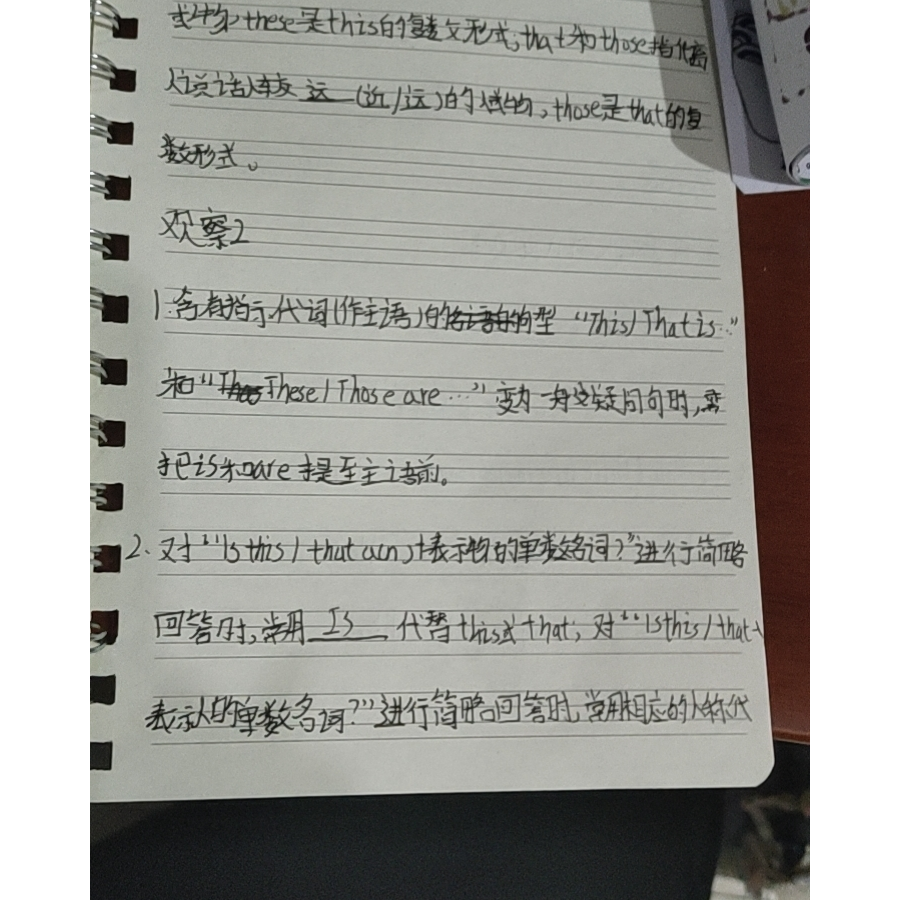 或物,these是this的复数形式;that和those指代离
说话人较 远 (近/远)的人或物,those是that的复
数形式。
观察2
1.含有指示代词(作主语)的句型 “This/That is…”
和“These/Those are …”变为一般疑问句时,需
把is和are提至主语前。
2.对“Is this/that a(n)+表示物的单数名词?”进行简略
回答时,常用 Is 代替this或that;对“Is this/that+
表示人的单数名词?”进行简略回答时,常用相应的人称代